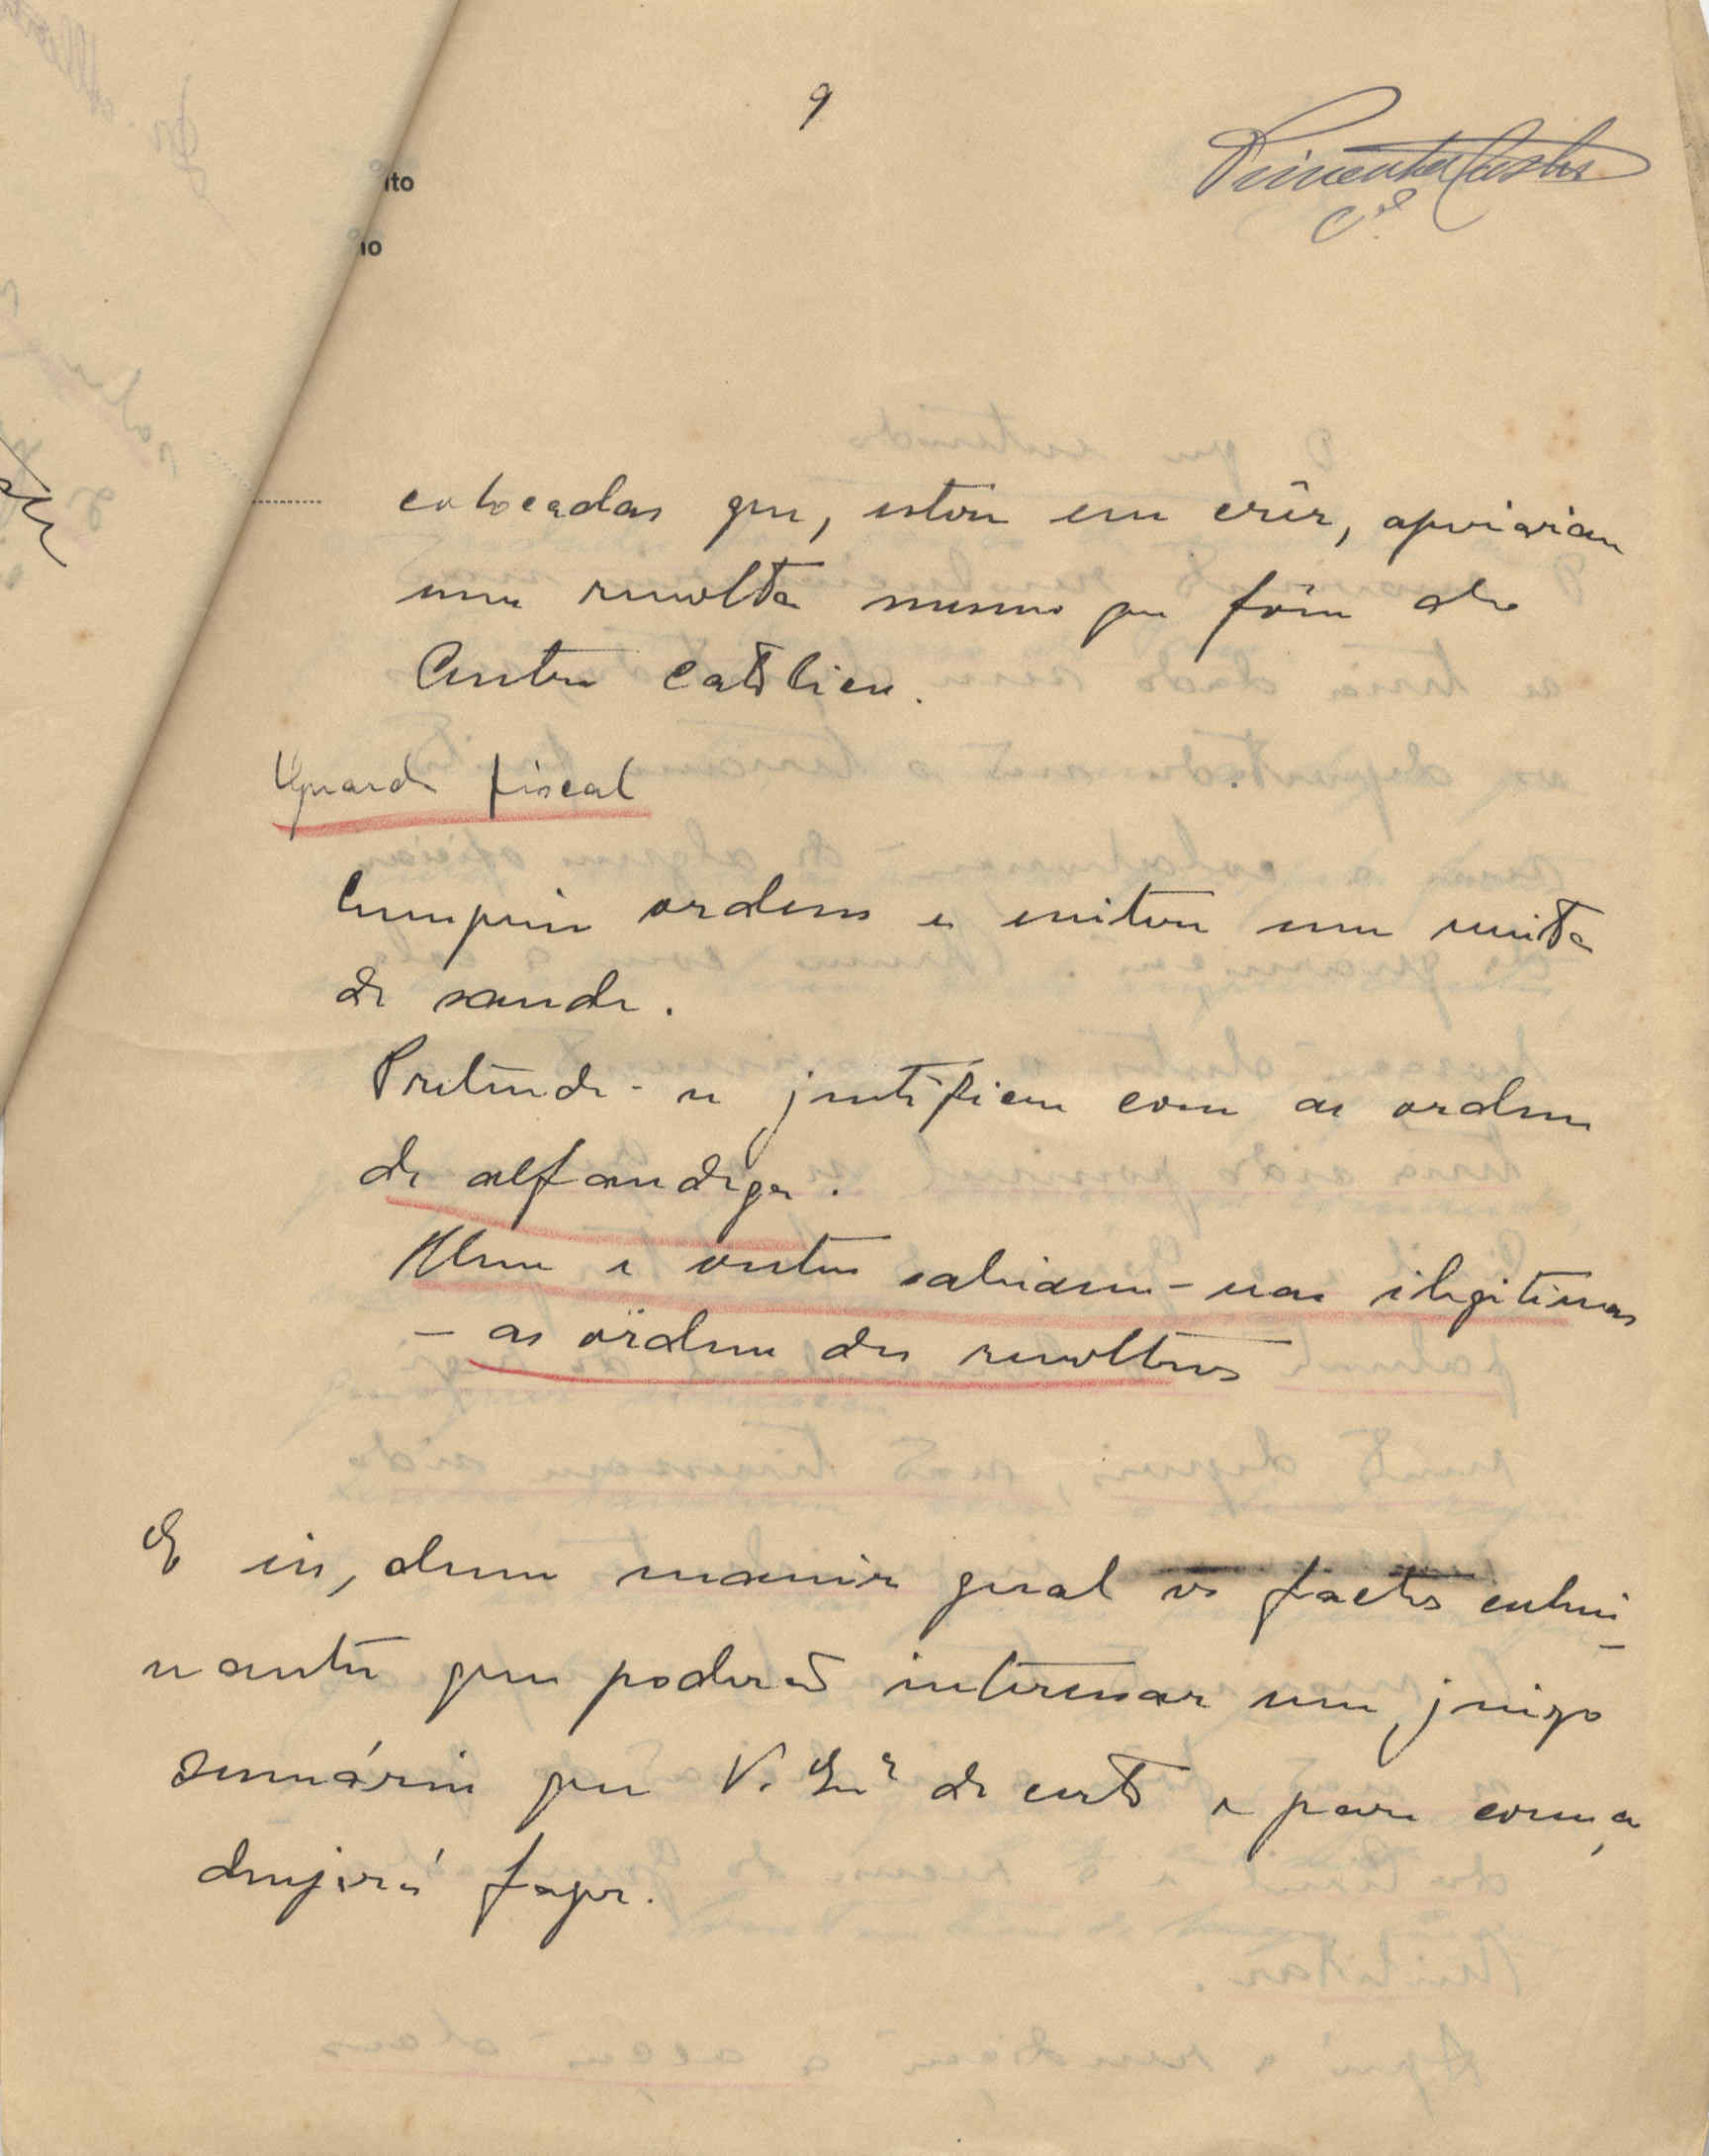 9
Pimenta Castro
C.el
ito
io
colocadas que, estou em crêr, apoiariam
uma revolta mesmo que fôsse do
Centro Católico.
Guarda fiscal
Cumpriu ordens e evitou uma revista
de saude.
Pretende-se justificar com as ordens
da alfandega.
Uma e outra sabiam-nas ilegitimas
– as ordens dos revoltosos
E eis, duma maneira geral os factos culmi-
nantes que poderão interessar um juizo
sumário que V. Exª de certo e para começar
desejará fazer.